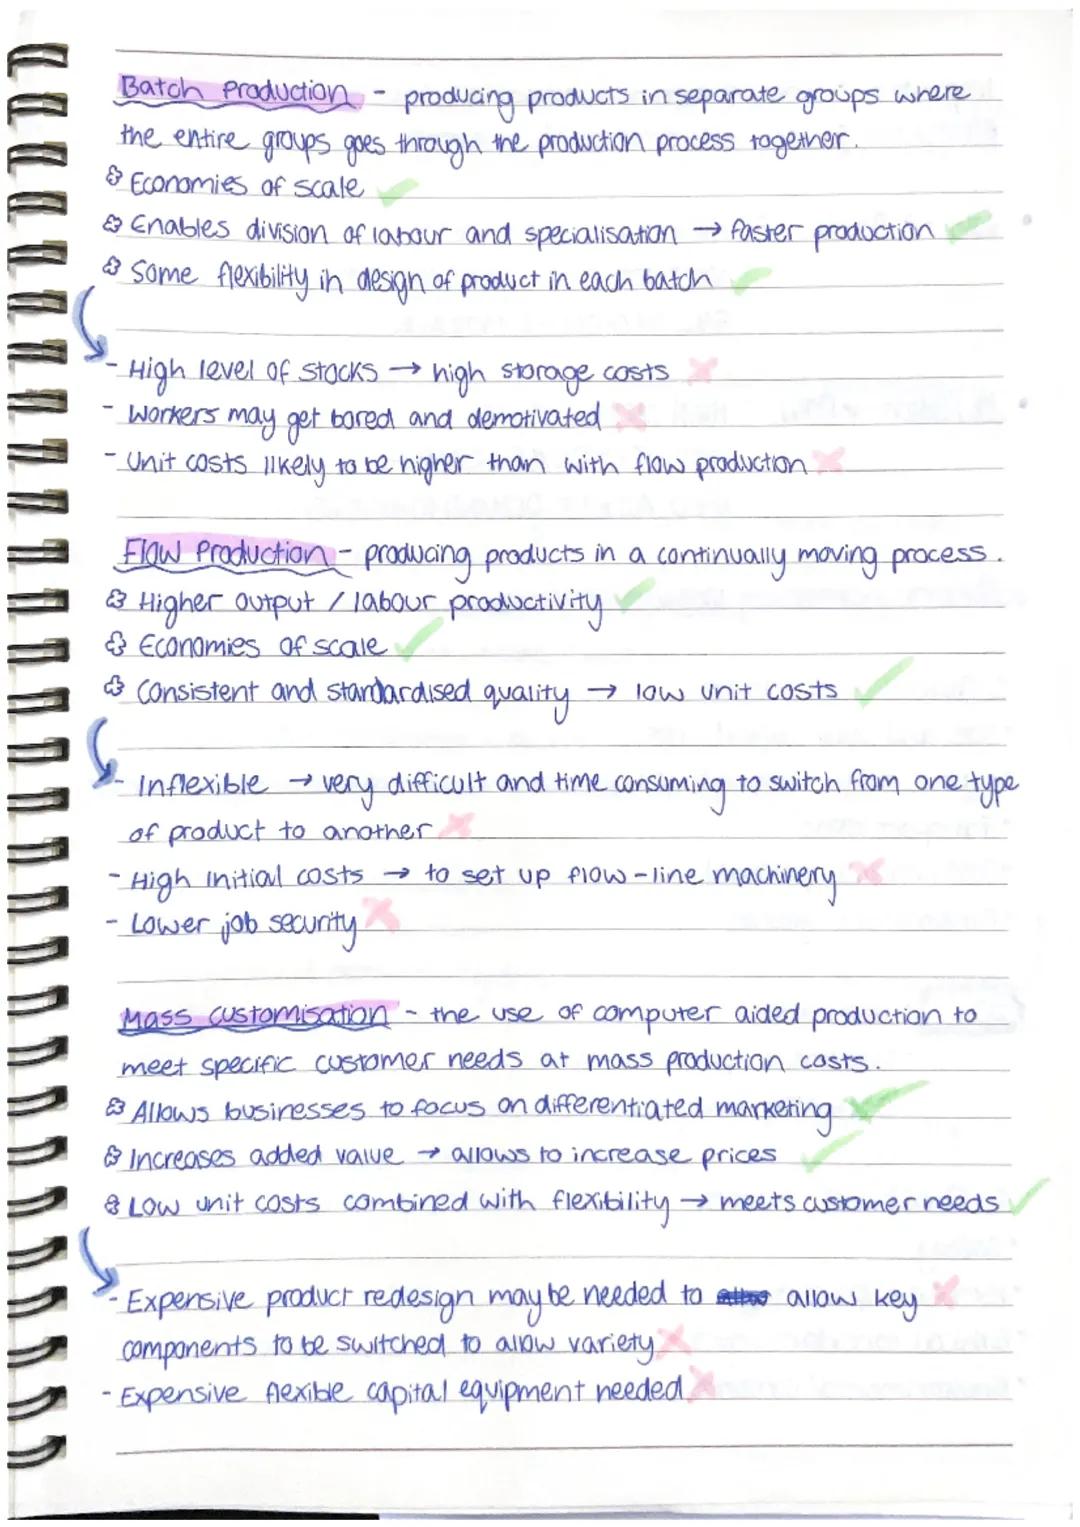 Batch production - producing products in separate groups where
the entire groups goes through the production process together.
Economies of scale
Enables division of labour and specialisation → faster production
Some flexibility in design of product in each batch
- High level of stocks → high storage costs
- Workers may get bored and demotivated
- Unit costs likely to be higher than with flow production
Flow Production - producing products in a continually moving process.
Higher output / labour productivity
Economies of scale
Consistent and standardised quality → low unit costs
- Inflexible → very difficult and time consuming to switch from one type
of product to another
- High initial costs → to set up flow-line machinery
- Lower job security
Mass customisation - the use of computer aided production to
meet specific customer needs at mass production costs.
Allows businesses to focus on differentiated marketing
Increases added value → allows to increase prices
Low unit costs combined with flexibility → meets customer needs
- Expensive product redesign may be needed to allow key
components to be switched to allow variety
- Expensive flexible capital equipment needed